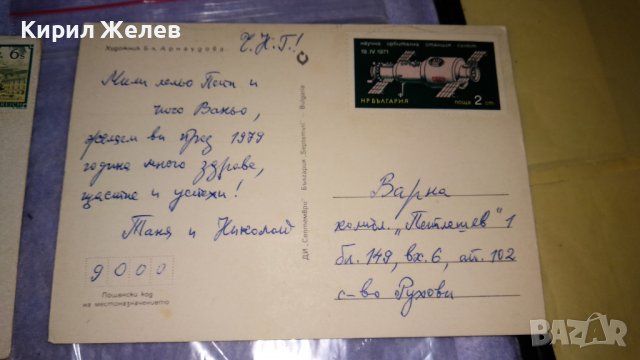 Кирил Желев
6
Художник Бл. Арнаудова
Ч.Н.Г!
Мили лельо Пепи и
чичо Ваньо,
желаем ви през 1979
година много здраве,
щастие и успехи!
Таня и Николай
9000
Пощенски код
на местоназначението
ДИ „Септември" България "Septemvri" Bulgaria
научна орбитална станция Салют
19 IV 1971
НР БЪЛГАРИЯ
поща 2 ст
Варна
компл. 1
бл. 149, вх. 6, ап. 102
с-во Рухови
BAZAR